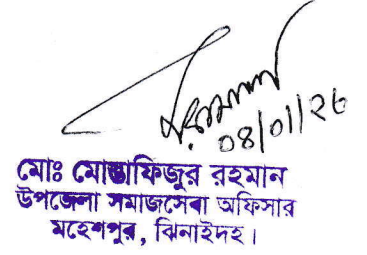 04/01/26
মোঃ মোস্তাফিজুর রহমান
উপজেলা সমাজসেবা অফিসার
মহেশপুর, ঝিনাইদহ।